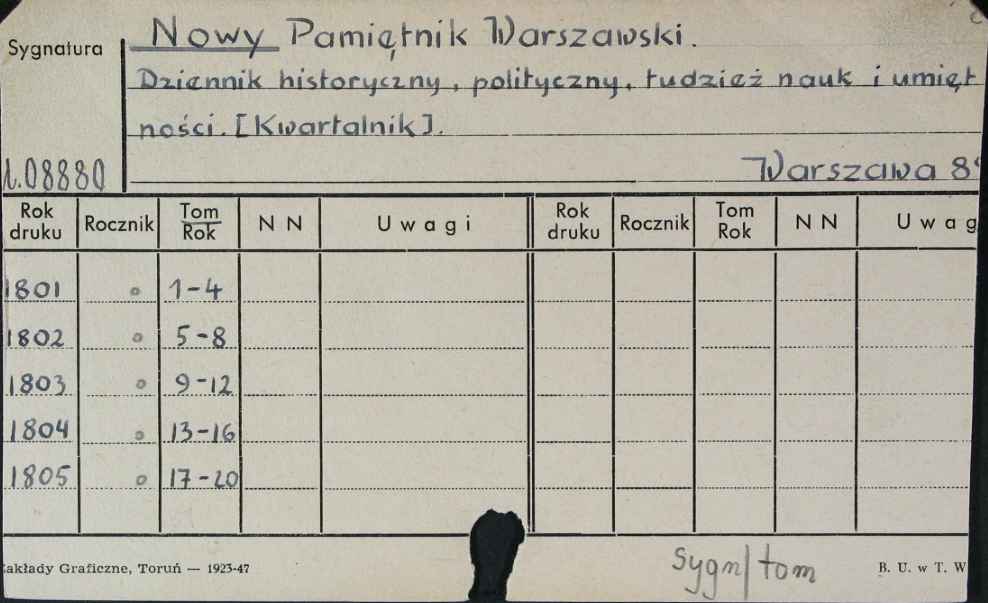 Nowy Pamiętnik Warszawski.
Sygnatura
Dziennik historyczny, polityczny, tudzież nauk i umięt
ności. [Kwartalnik].
08880
Warszawa
Rok druku Rocznik Tom Rok NN Uwagi Rok druku Rocznik Tom Rok NN Uwag
1801 1-4
1802 5-8
1803 9-12
1804 13-16
1805 17-20
sygn/tom
akłady Graficzne, Toruń — 1923-47 B. U. w T. W